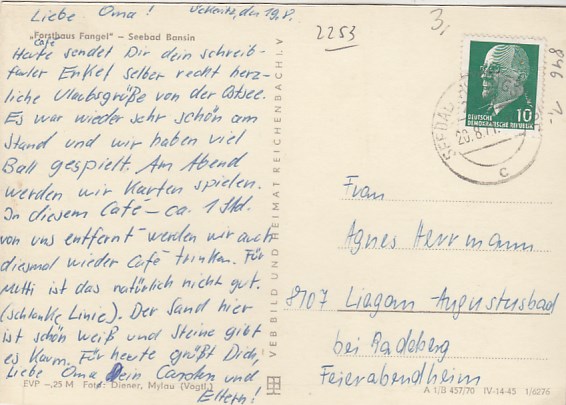 Liebe Oma! Ückeritz, den 19.8.
„Forsthaus Fangel" — Seebad Bansin
Café
Heute sendet Dir dein schreib-
fauler Enkel selber recht herz-
liche Ulaubsgrüße von der Ostsee.
Es war wieder sehr schön am
Stand und wir haben viel
Ball gespielt. Am Abend
werden wir Karten spielen.
In diesem Café – ca. 1 Std.
von uns entfernt werden wir auch
diesmal wieder Café trinken. Für
Mutti ist das natürlich nicht gut.
(schlanke Linie). Der Sand hier
ist schön weiß und Steine gibt
es kaum. Für heute grüßt Dich,
Liebe Oma Dein Carsten und
Eltern!
EVP –,25 M Foto: Diener, Mylau (Vogtl.)
VEB BILD UND HEIMAT REICHENBACH I. V
2253
3,
846
1,-
DEUTSCHE
DEMOKRATISCHE REPUBLIK
10
SEEBAD
20.8.71
c
Frau
Agnes Herrmann
8107 Liegau-Augustusbad
bei Radeberg
Feierabendheim
A 1/B 457/70 IV-14-45 1/6276